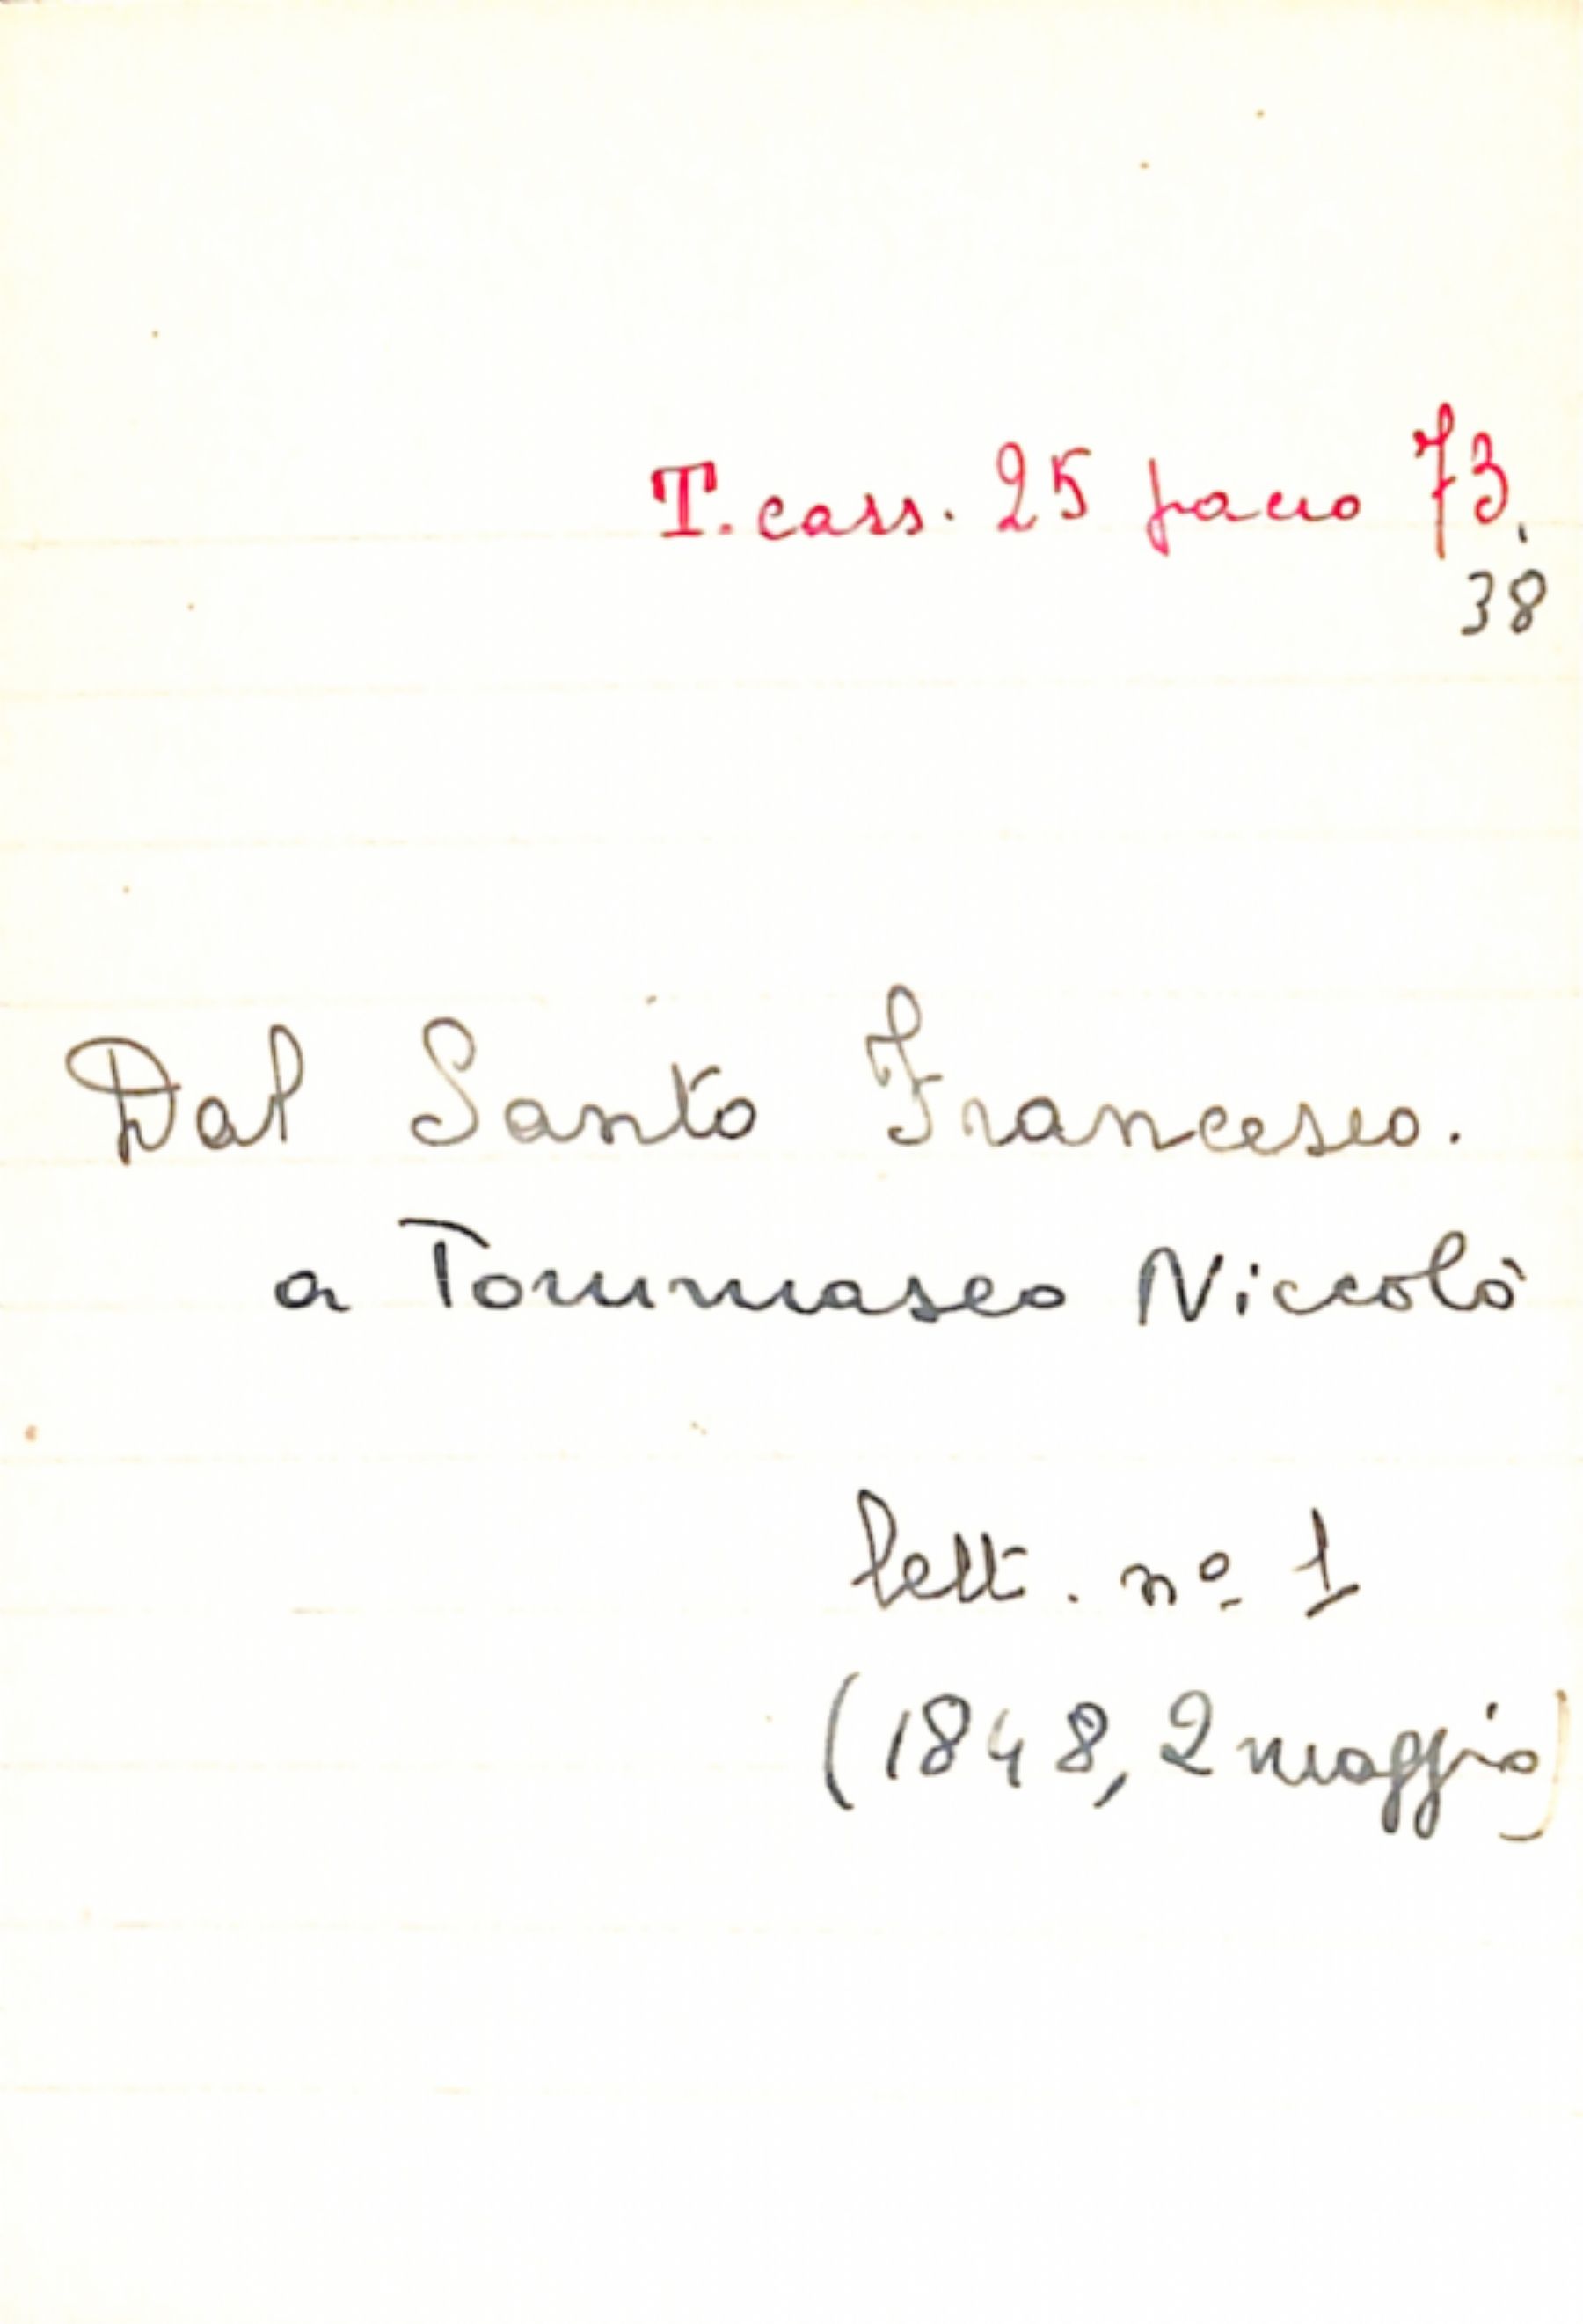 T. cass. 25 pacco 73,
38
Dal Santo Francesco.
a Tommaseo Niccolò
lett. nº 1
(1848, 2 maggio)